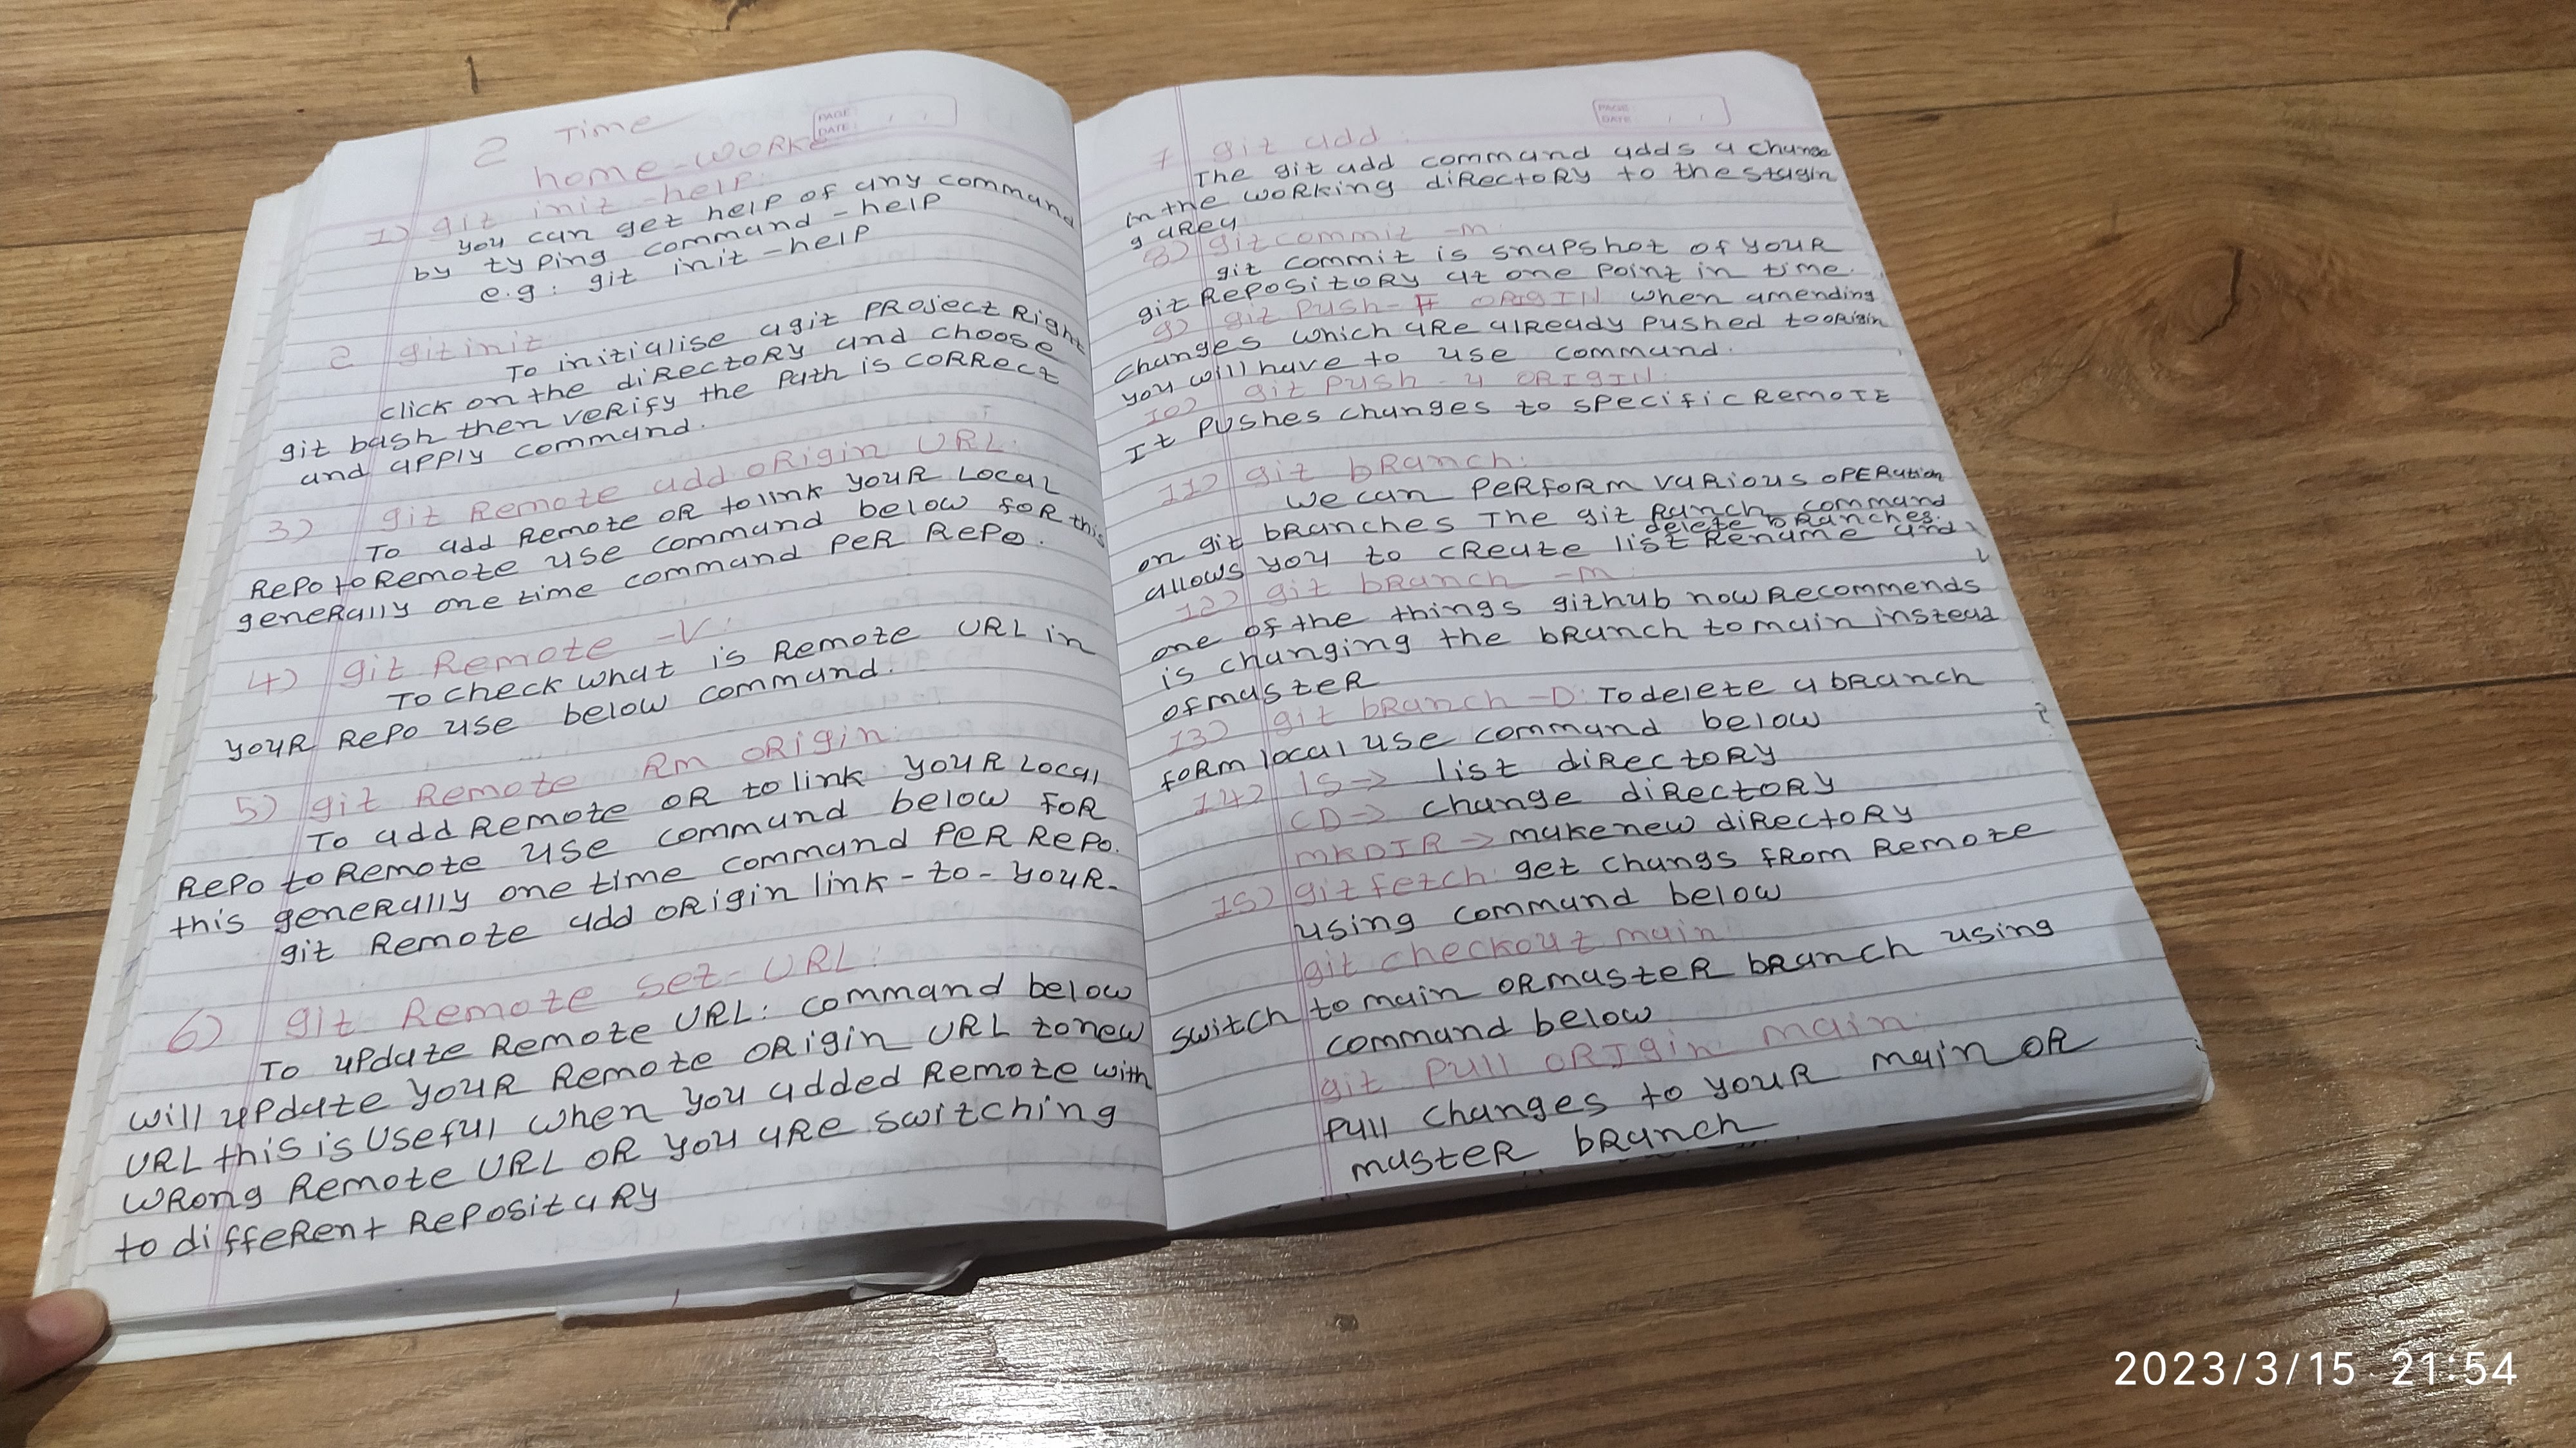 2 Time
home-WORKe
PAGE:
DATE:
1) git init -help:
you can get help of any command
by typing command -help
e.g: git init -help
2 git init
To initialise a git PROJect Right
click on the diRectORY and choose
git bash then veRify the Path is coRRect
and apply command.
3) git Remote add oRigin URL:
To add Remote OR to link youR Local
RePo to Remote use command below foR this
geneRally one time command PeR RePo.
4) git Remote -V:
To check what is Remote URL in
youR RePo use below command.
5) git Remote Rm oRigin:
To add Remote OR to link youR Local
RePo to Remote use command below foR
this geneRally one time command PeR RePo.
git Remote add oRigin link-to-youR-
6) git Remote set-URL:
To uPdate Remote URL: command below
will uPdate youR Remote oRigin URL to new
URL this is useful when you added Remote with
wRong Remote URL oR you aRe switching
to diffeRent RePositaRy
PAGE:
DATE:
7 git add:
The git add command adds a change
in the woRking diRectoRy to the stagin
g aRea
8) git commit -m
git commit is snaPshot of youR
git RePositoRy at one Point in time.
9) git Push-F ORIGIN when amending
changes which aRe alReady Pushed to oRigin
you will have to use command.
10) git Push-u ORIGIN:
It Pushes changes to sPecific RemoTE
11) git bRanch:
we can PeRfoRm vaRious oPERation
on git bRanches The git Ranch command
delete bRanches.
allows you to cReate list Rename and
12) git bRanch -m
one of the things github now Recommends
is changing the bRanch to main instead
of masteR
13) git bRanch -D: To delete a bRanch
foRm local use command below
14) LS-> list diRectoRy
CD-> change diRectoRy
MKDIR-> make new diRectoRy
15) git fetch: get changs fRom Remote
using command below
git checkout main:
switch to main oR masteR bRanch using
command below
git Pull oRIgin main:
Pull changes to youR main OR
masteR bRanch
2023/3/15 21:54